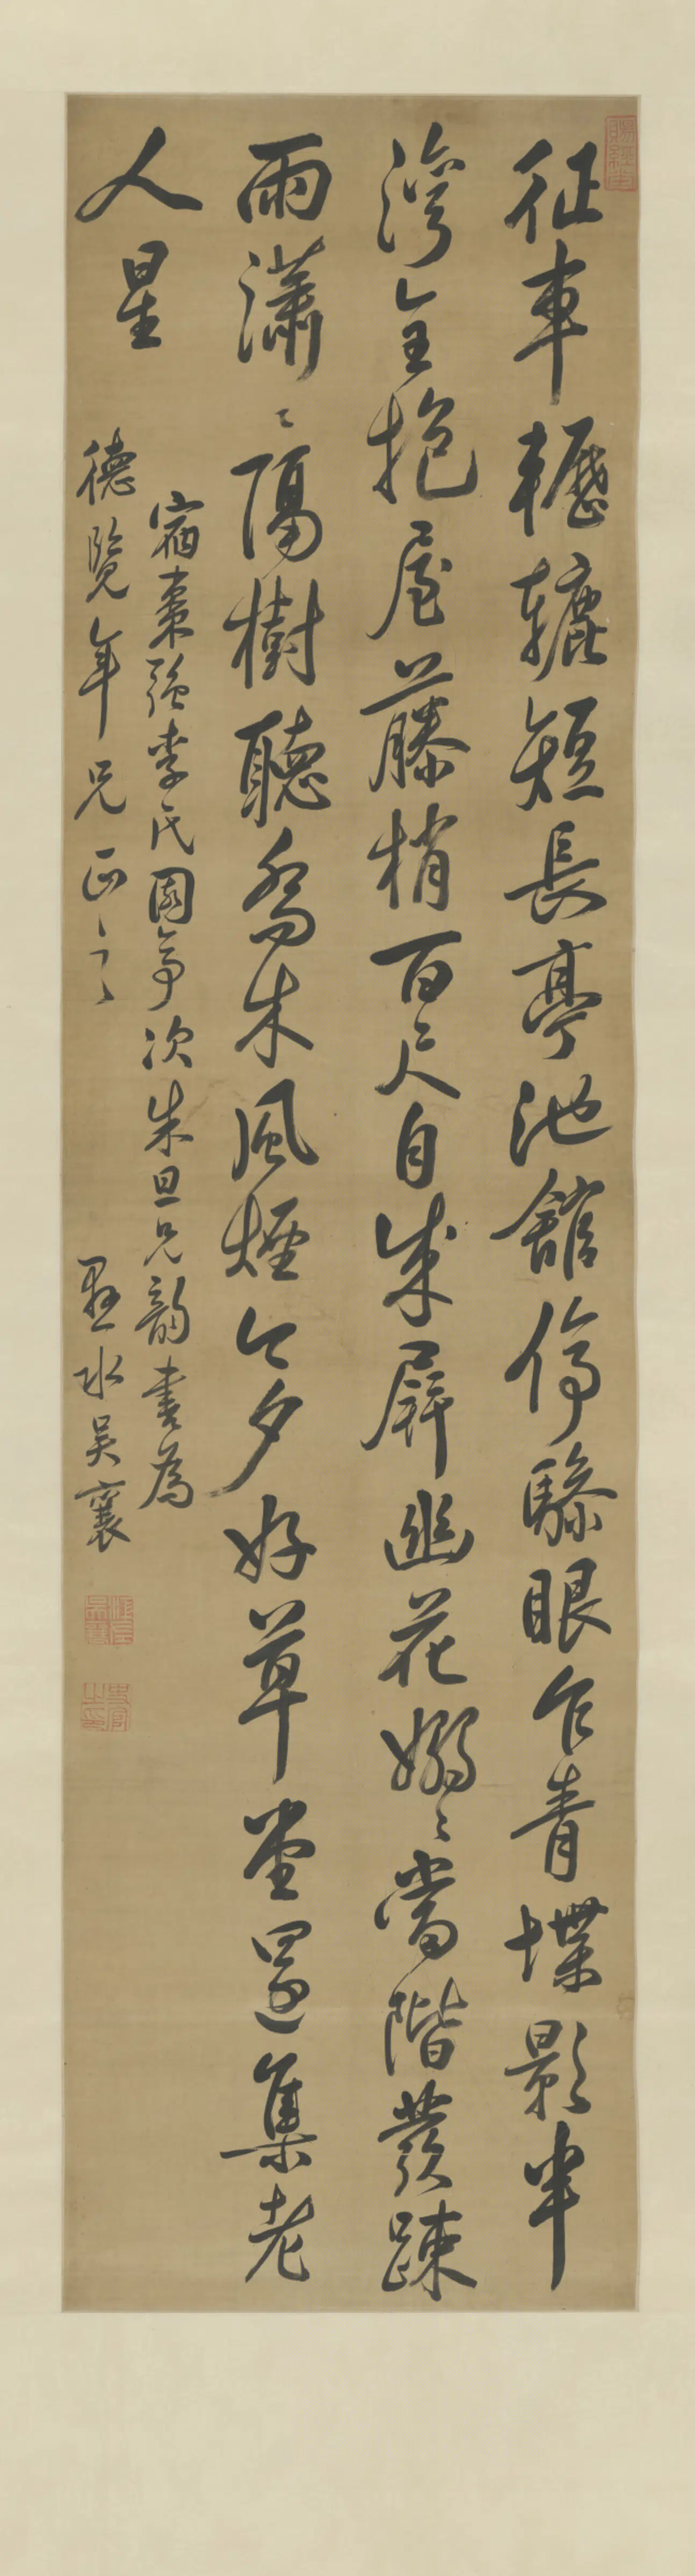 征車轣轆短長亭池館停驂眼乍青堞影半
灣全抱屋藤梢百尺自成屏幽花嫋〻當階發疎
雨瀟〻隔樹聽喬木風煙今夕好草堂還集老
人星
宿棗強李氏園亭次朱旦兄韻書為
德覽年兄正之
縣水吳襄